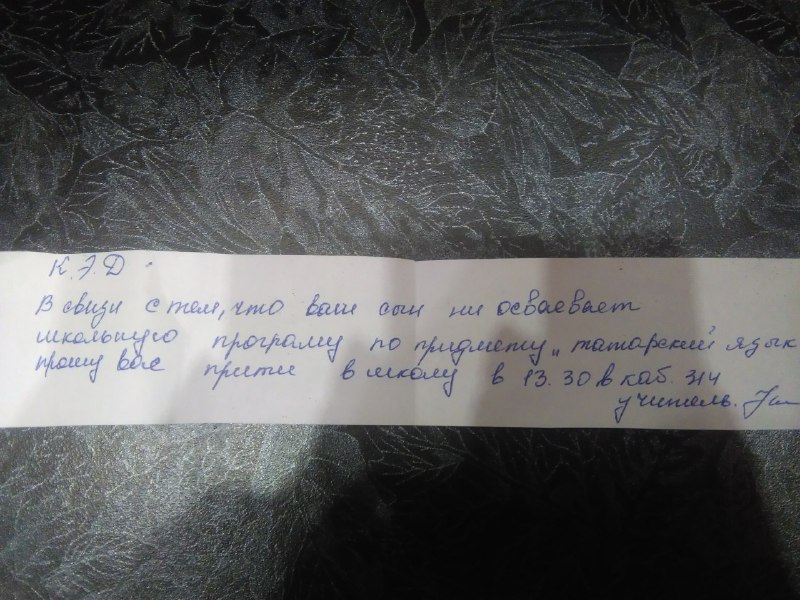 К.Э.Д.
В связи с тем, что ваш сын ни осваевает
школьную програму по придмету „татарский язык
прошу вас притти в школу в 13.30 в каб. 314
учитель.